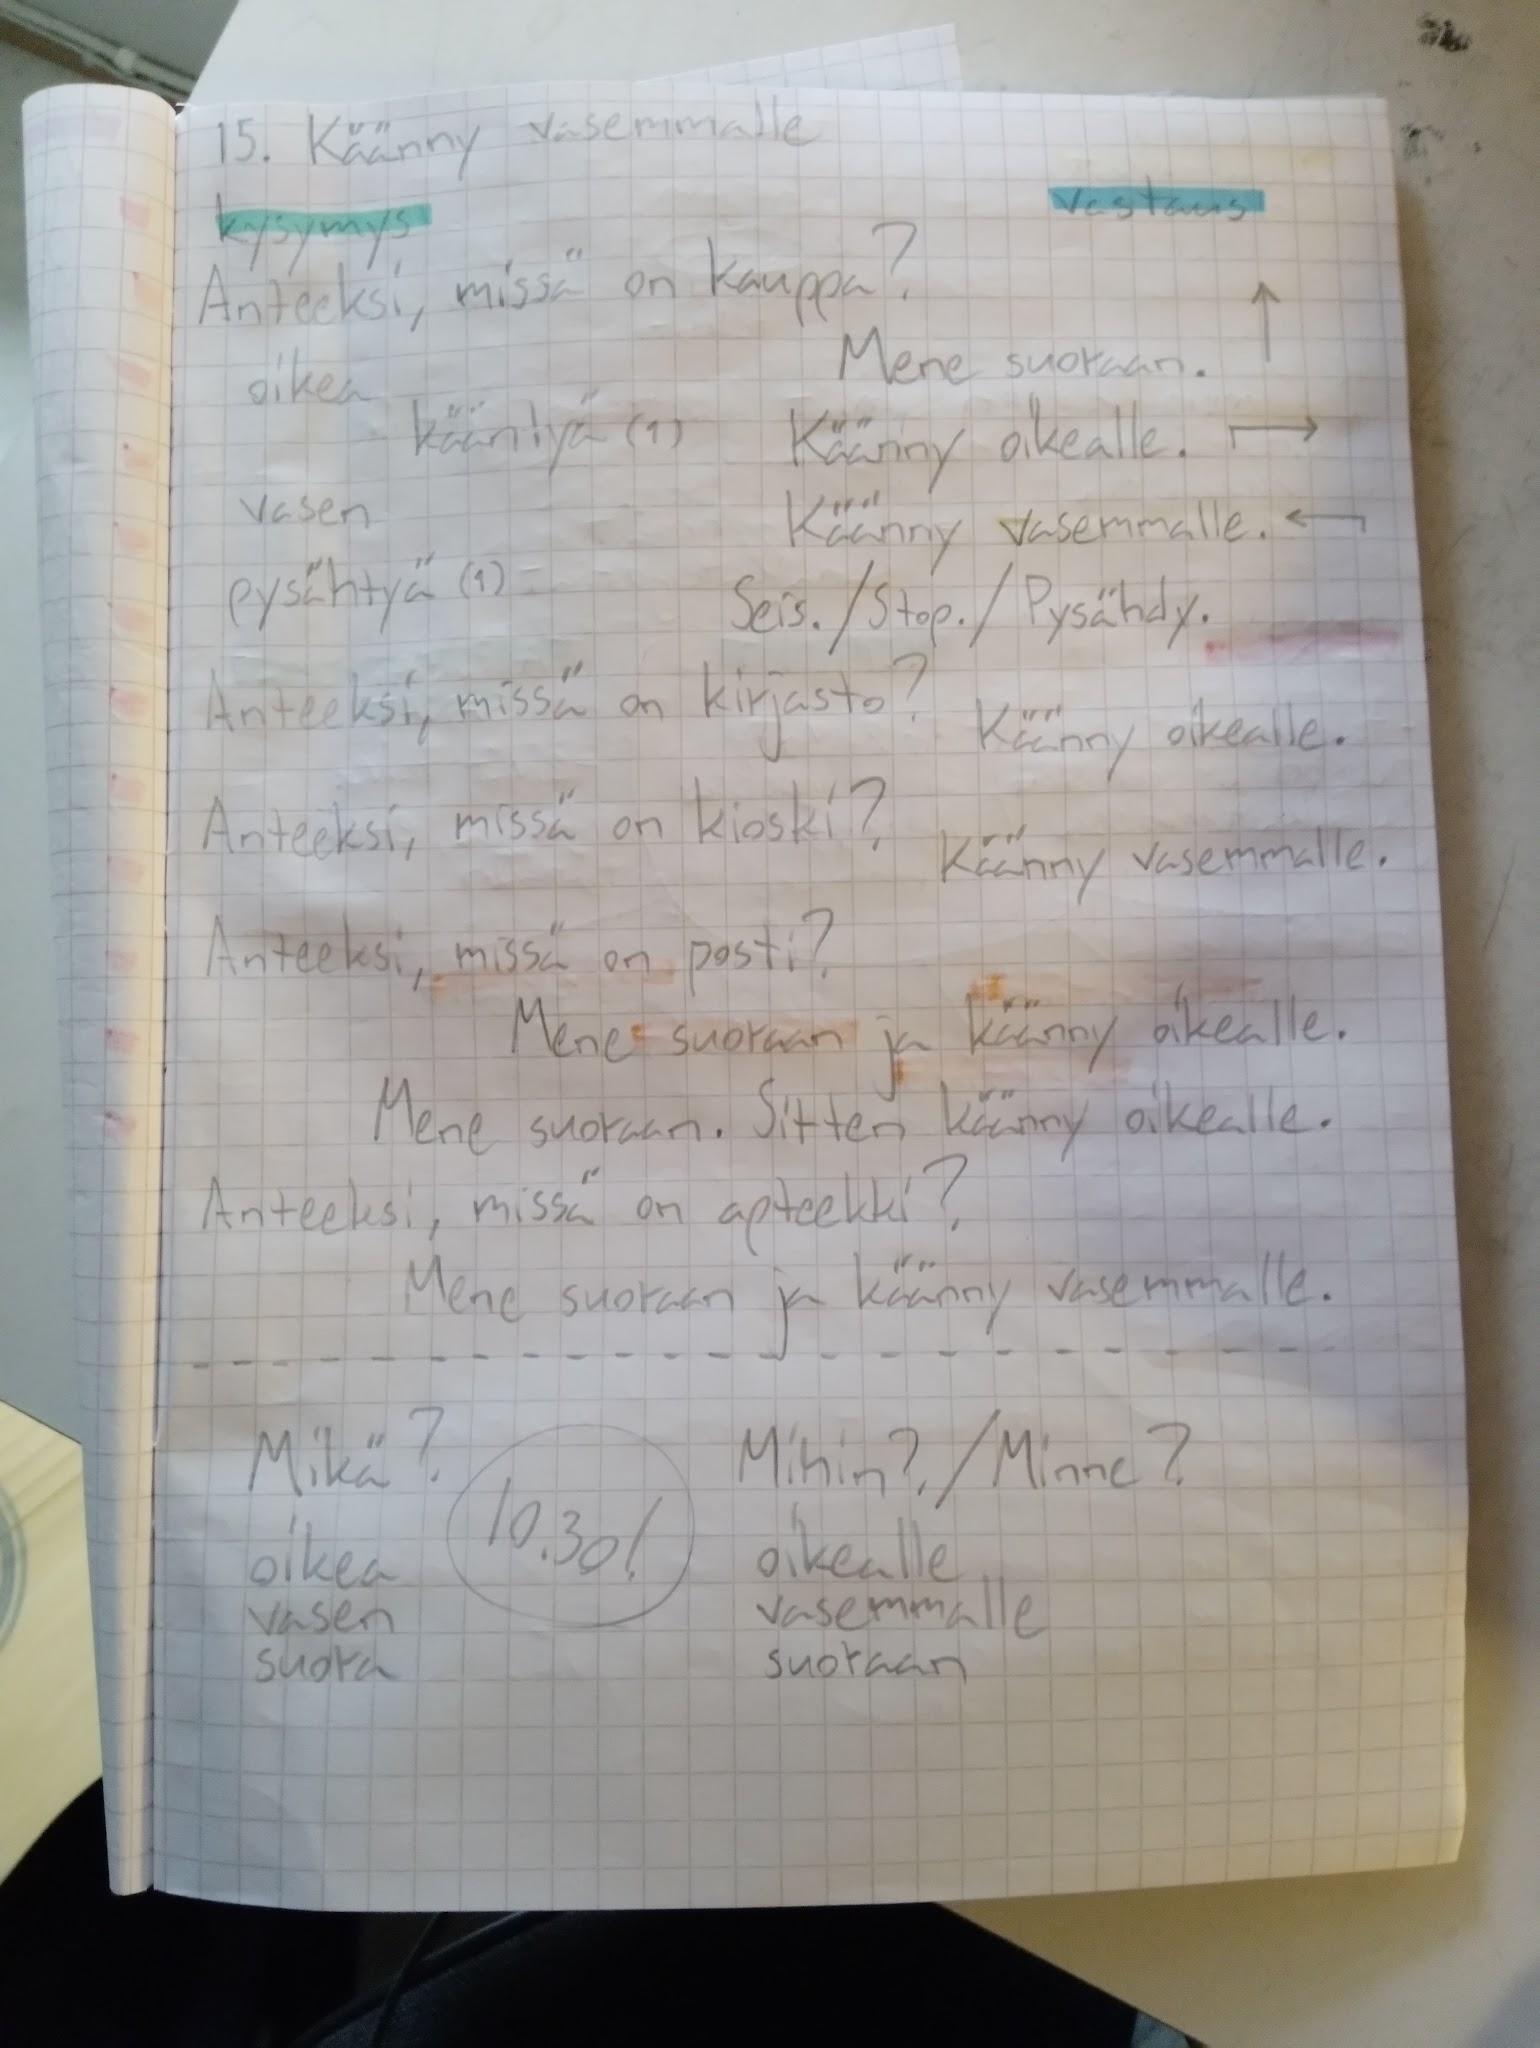 15. Käänny vasemmalle
kysymys vastaus
Anteeksi, missä on kauppa?
Mene suoraan. ↑
oikea
kääntyä (1) Käänny oikealle. →
vasen Käänny vasemmalle. ←
pysähtyä (1) Seis. / Stop. / Pysähdy.
Anteeksi, missä on kirjasto?
Käänny oikealle.
Anteeksi, missä on kioski?
Käänny vasemmalle.
Anteeksi, missä on posti?
Mene suoraan ja käänny oikealle.
Mene suoraan. Sitten käänny oikealle.
Anteeksi, missä on apteekki?
Mene suoraan ja käänny vasemmalle.
Mikä? Mihin? / Minne?
10.30!
oikea oikealle
vasen vasemmalle
suora suoraan